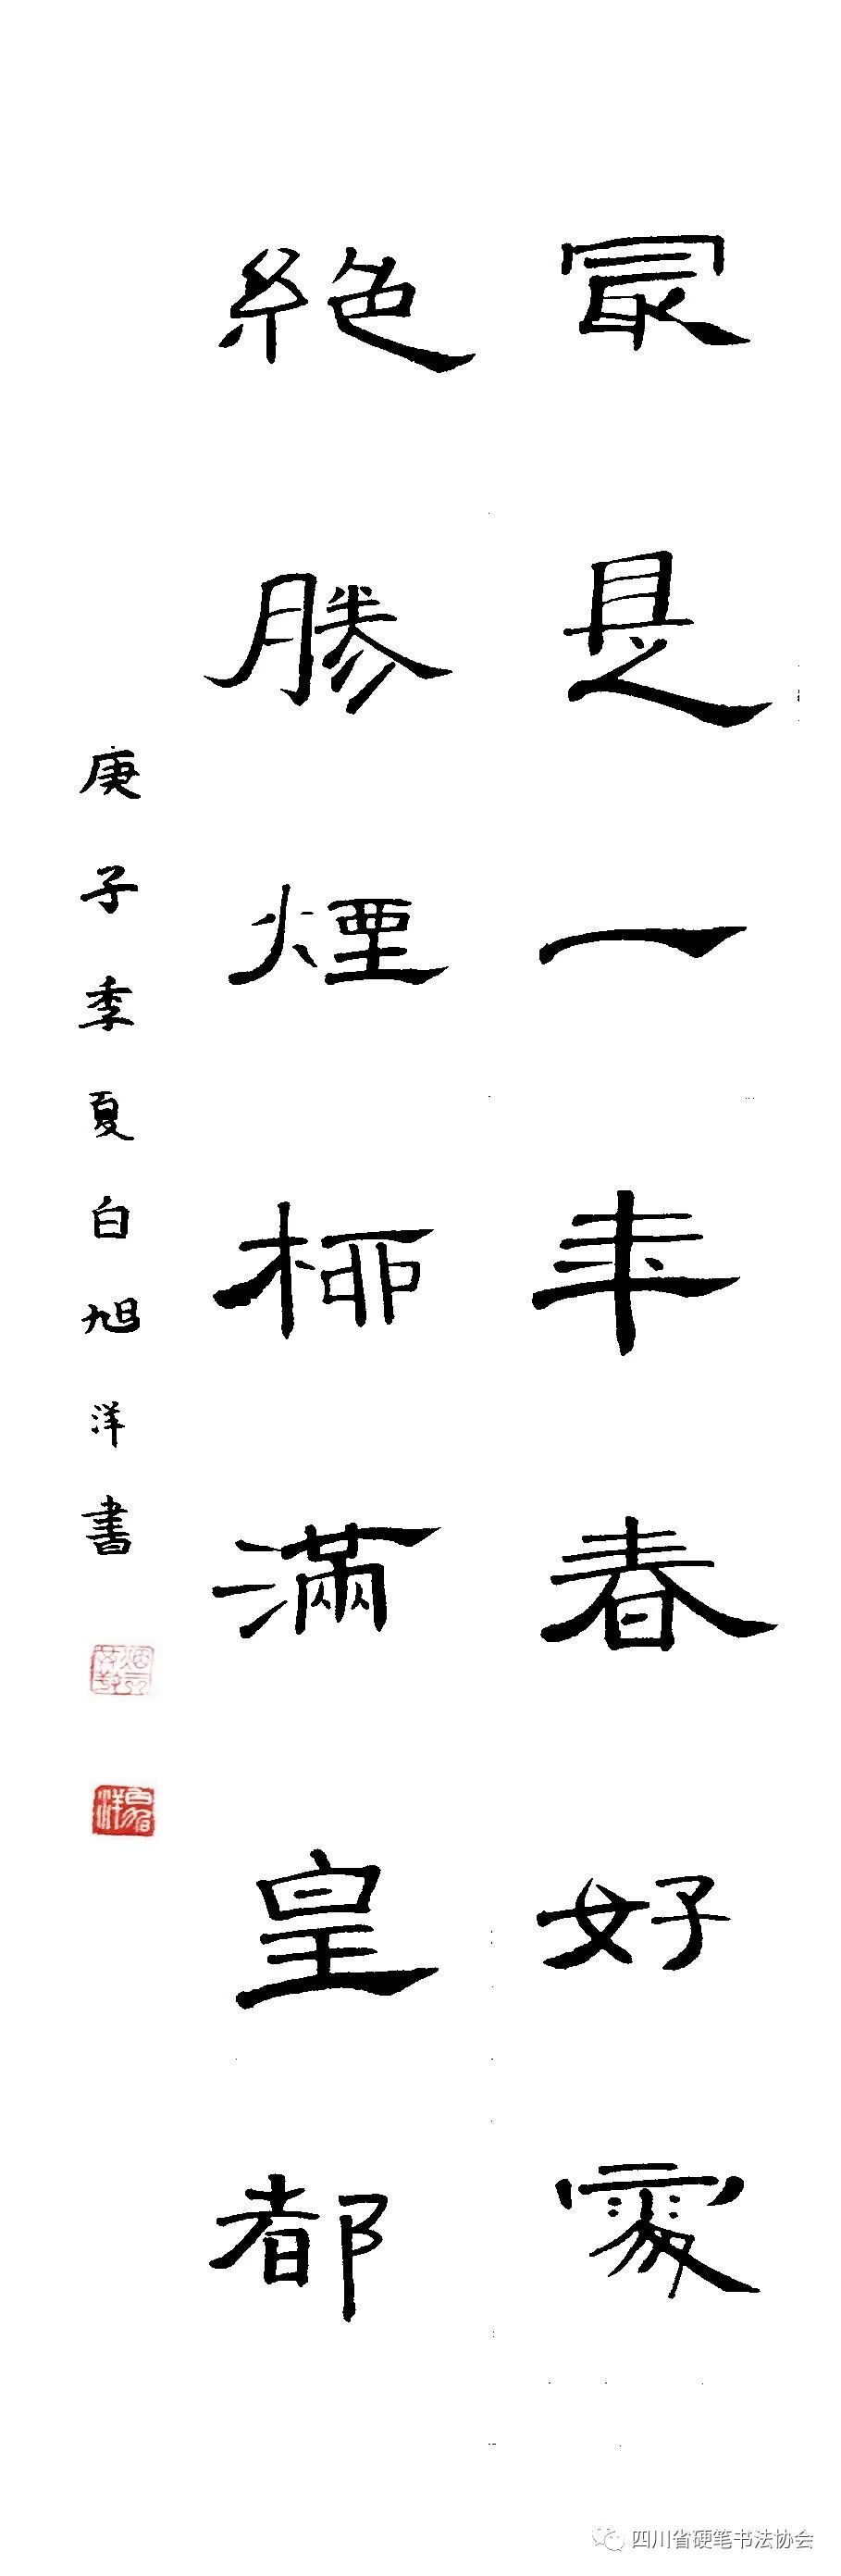 最是一年春好處
絕勝煙柳滿皇都
庚子季夏白旭洋書
四川省硬笔书法协会